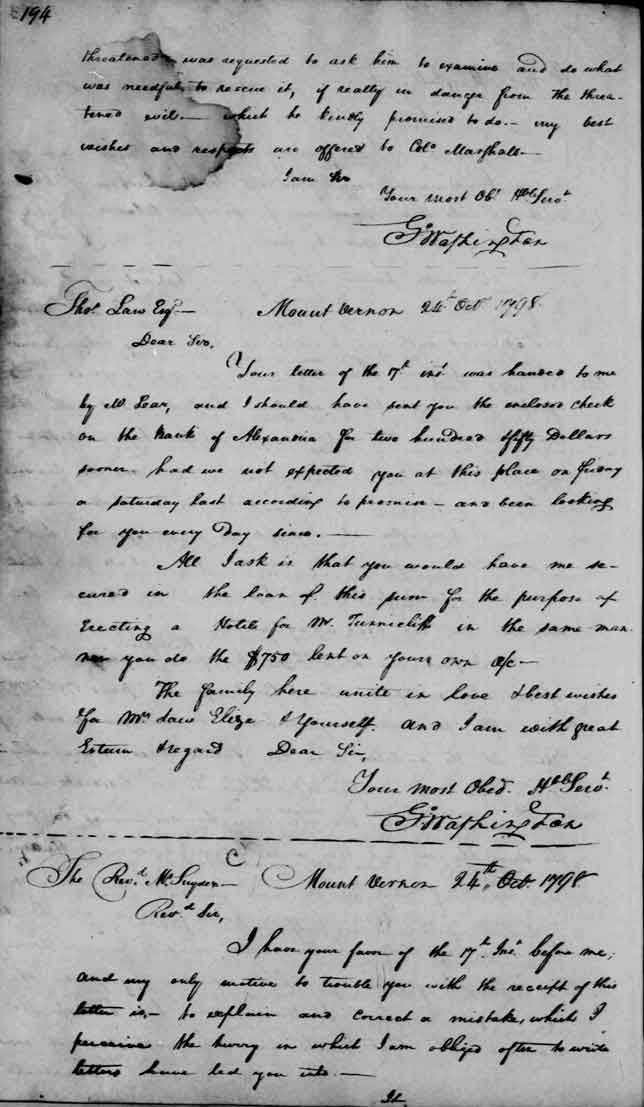 194
threatened, was requested to ask him to examine and do what
was needful to rescue it, if really in danger from the threa-
tened evil.— which he kindly promised to do.— my best
wishes and respects are offered to Colo. Marshall.—
I am &c
Your most Obt Hble Servt
Go Washington
Thos. Law Esqr.— Mount Vernon 24th Octr 1798
Dear Sir,
Your letter of the 17th inst was handed to me
by Mr Lear, and I should have sent you the enclosed check
on the Bank of Alexandria for two hundred & fifty Dollars
sooner had we not expected you at this place on friday
or saturday last according to promise— and been looking
for you every Day since.—
All I ask is that you would have me se-
cured in the loan of this sum for the purpose of
Erecting a Hotel for Mr. Tunnicliff in the same man
ner you do the $750 lent on yours own a/c—
The family here unite in love & best wishes
for Mrs Law Eliza & Yourself. and I am with great
Esteem & regard Dear Sir,
Your most Obed. Hble Servt.
Go Washington
The Revd. Mr Snyder— Mount Vernon 24th. Oct. 1798
Revd Sir,
I have your favor of the 17th. Inst. before me;
and my only motive to trouble you with the receipt of this
letter is,— to explain and correct a mistake, which I
perceive the hurry in which I am obliged often to write
letters have led you into.—
It